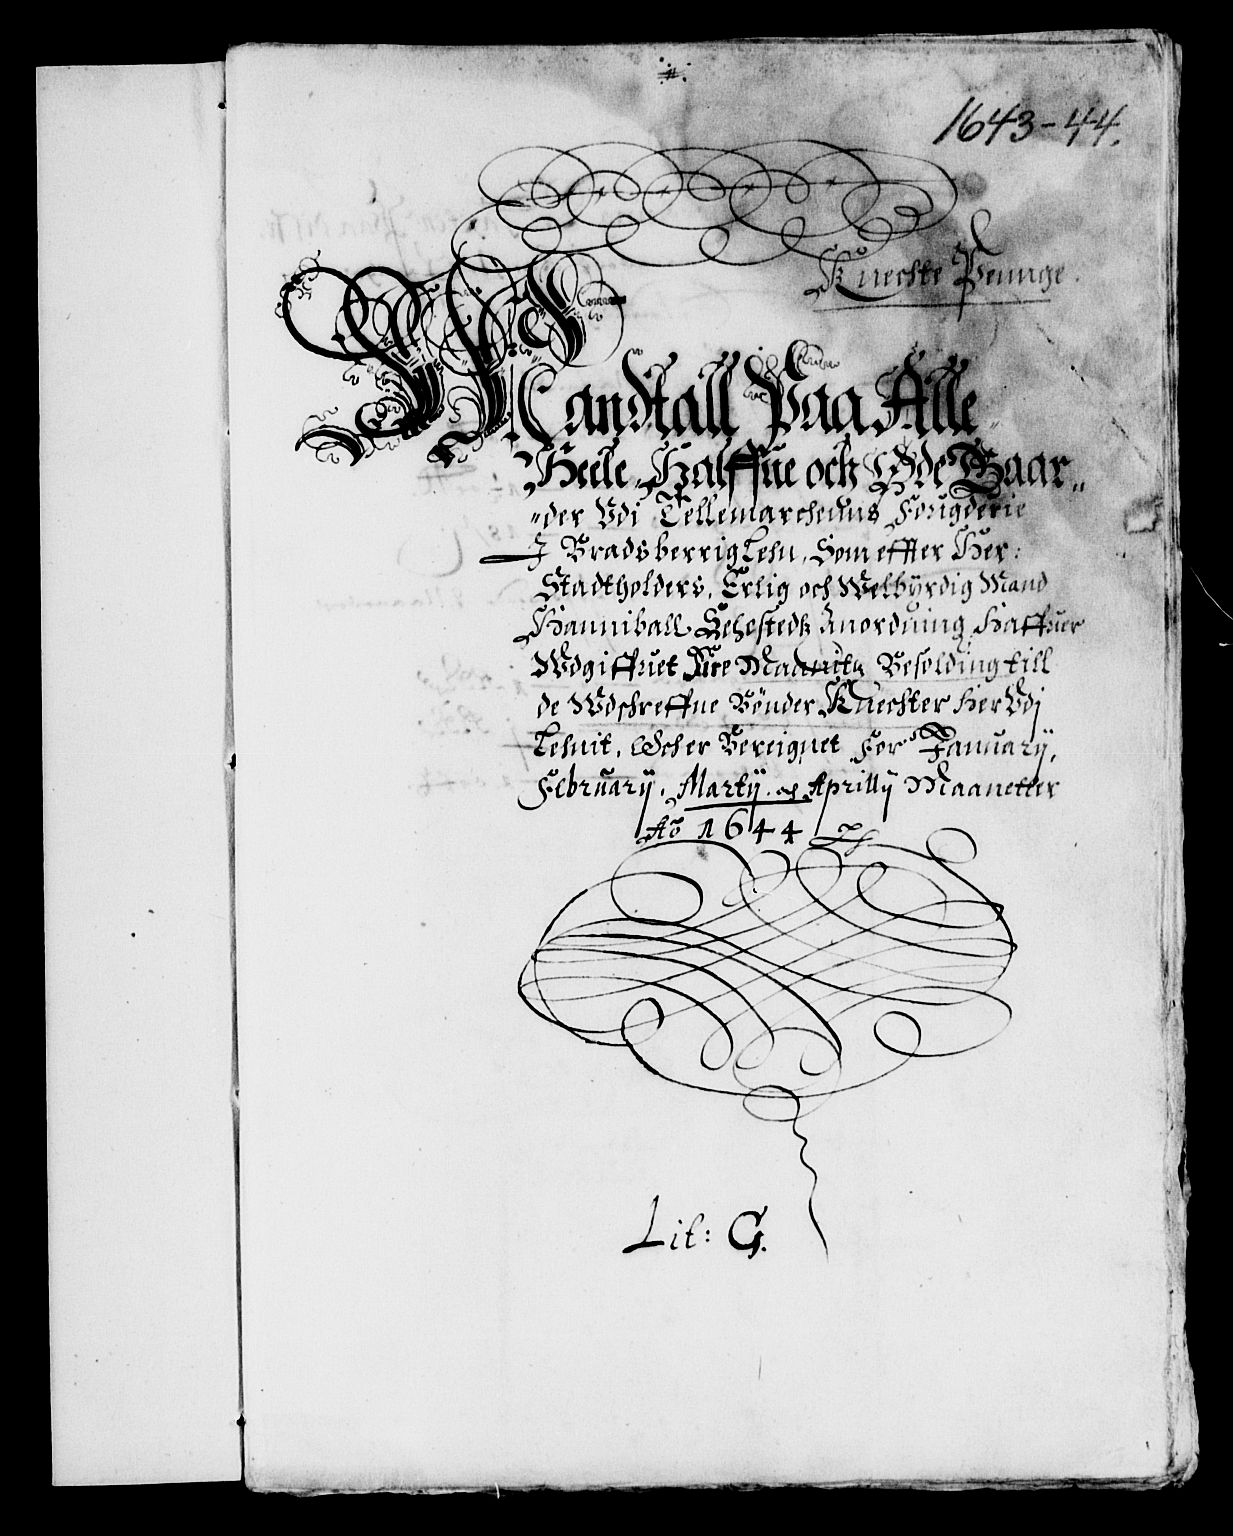 1643-44.
Knechte Penge.
Mandtall Paa Alle
Heele, Halffue och Øde Gaar„
„der Vdi Tellemarchens Fougderie
I Bradsberrig Lehn, Som effter Her:
Stadtholders, Erlig och Welbÿrdig Mand
Hanniball Sehestedtz Anordning Haffuer
Wdgiffuet Besolding till
de Wdschreffne Bønder Knechter Her Vdj
Lehnit, och er Bereignet For January,
February, Marty, og Aprilly Maanetter
Ao 1644
Lit: G.